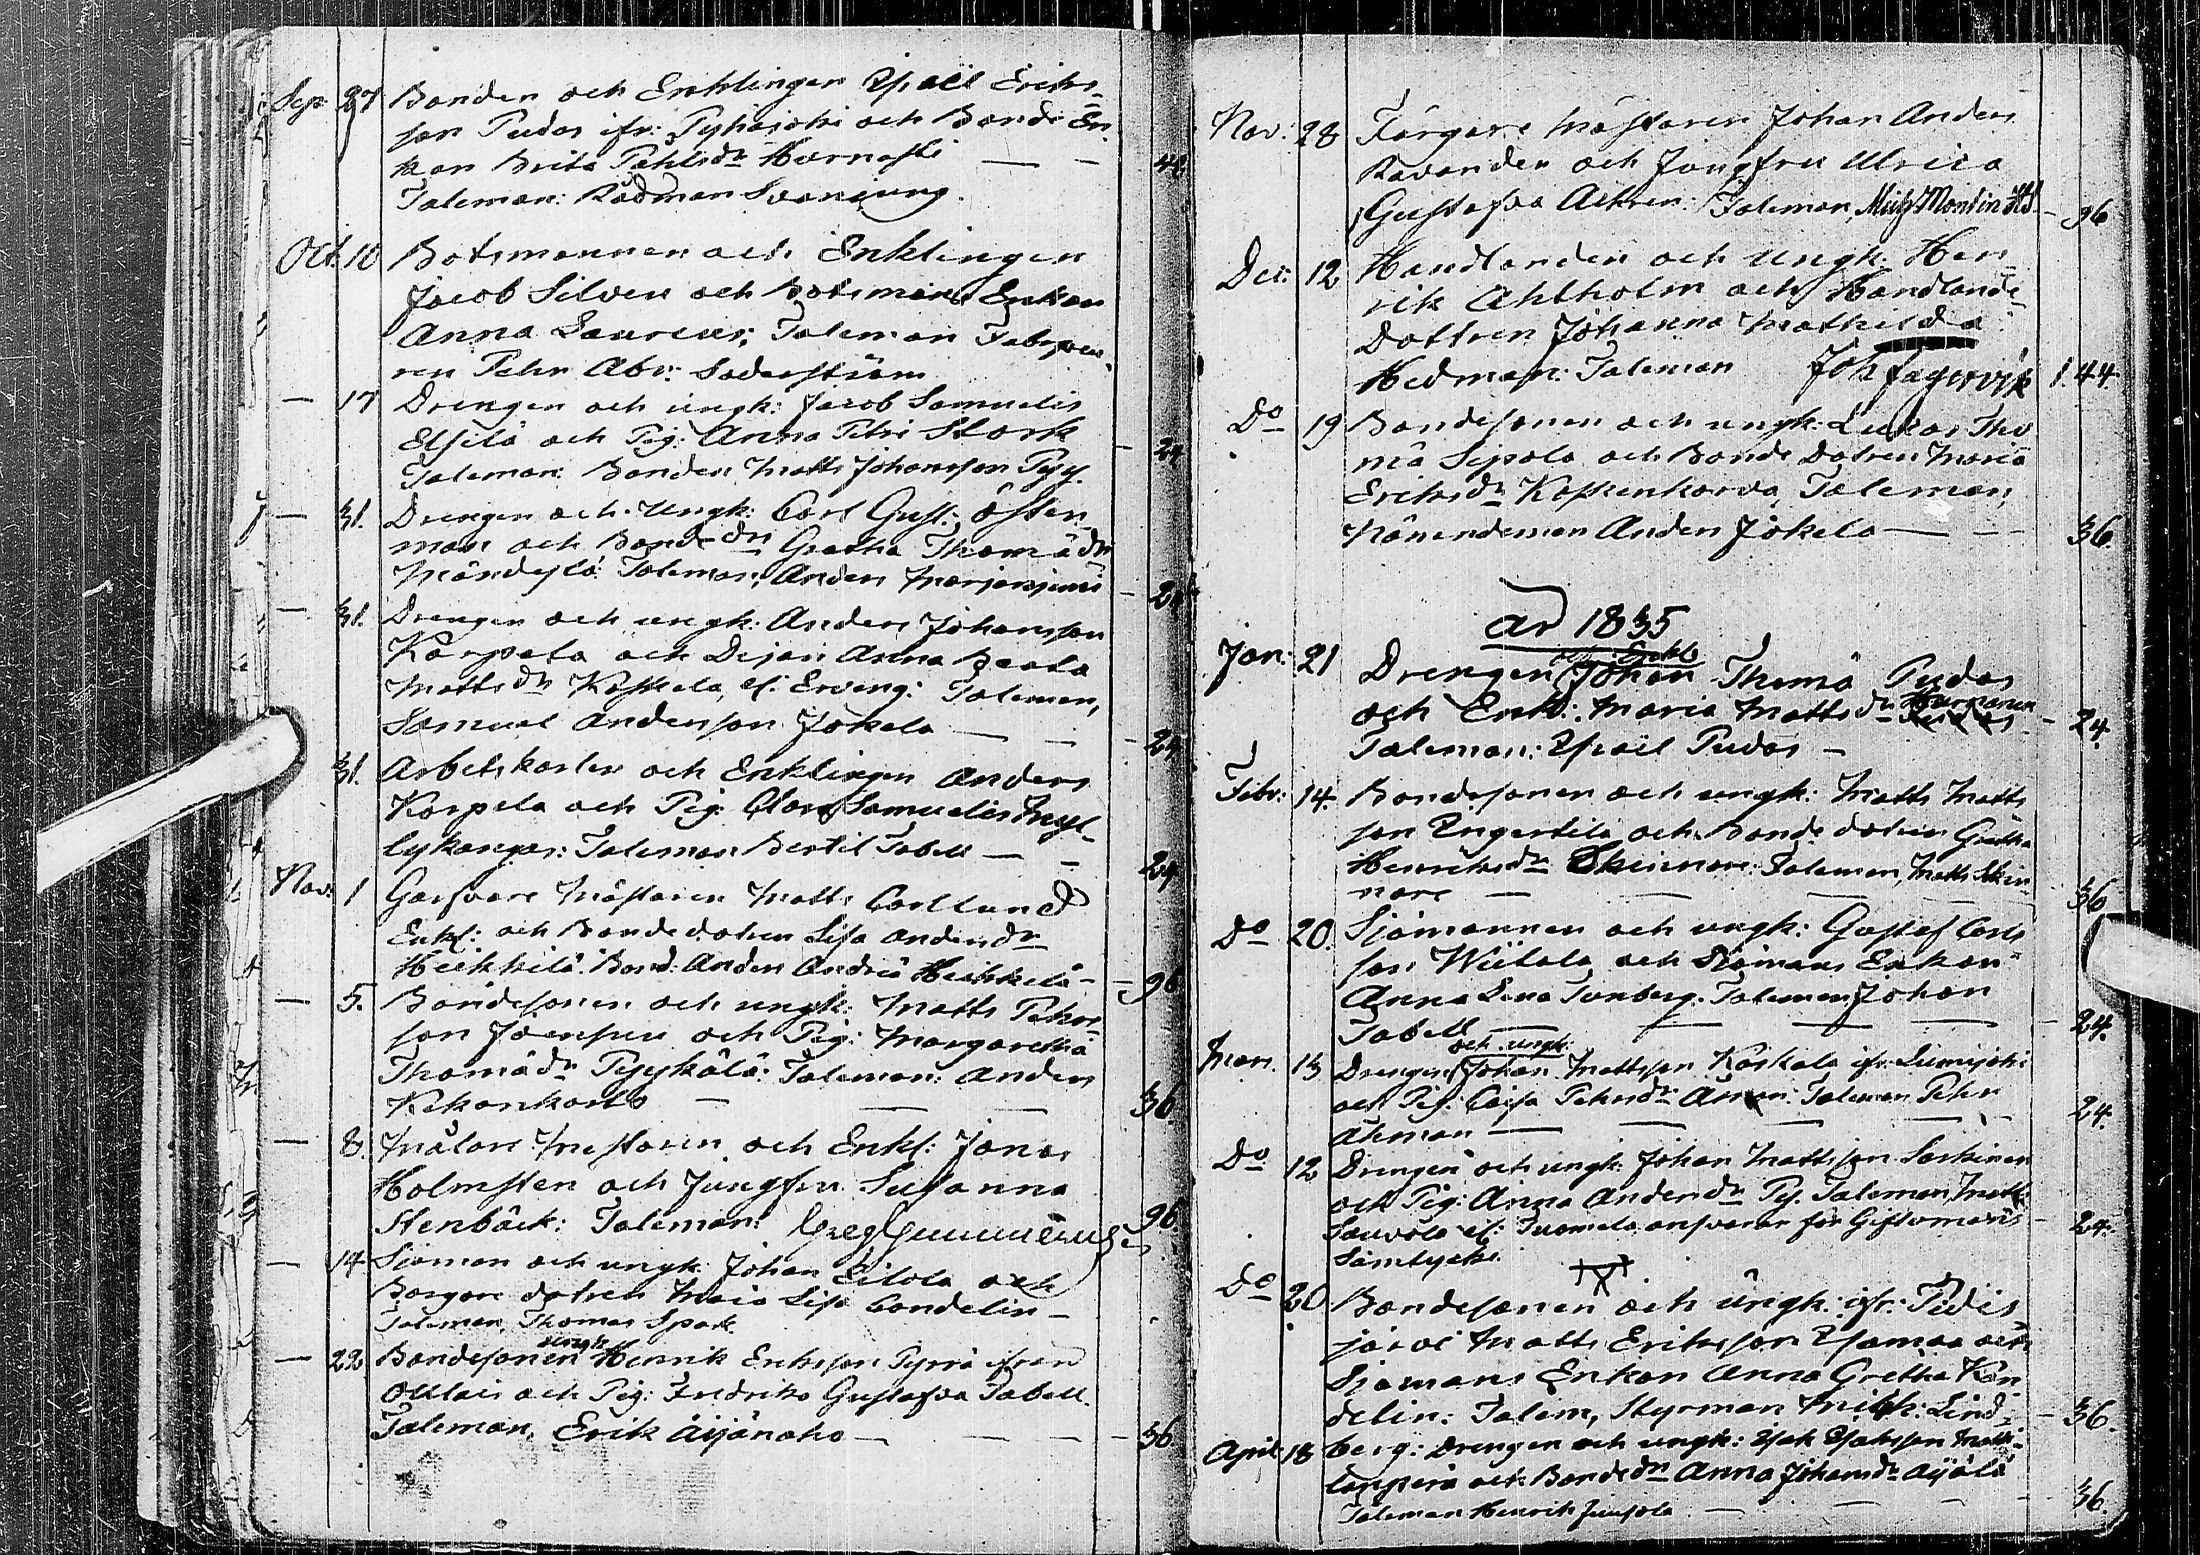 Sep 27 Bonden och Enklingen Isaël Eriks-
son Pudas ifr: Pyhäjoki och Bonde En-
kan Brita Pehlsdr Harnaski — — 48.
Taleman: Rådman Svanljung.
Oct. 10 Botsmannen och Enklingen
Jacob Silven och Botsmans Enkan
Anna Laureus; Taleman
ren Pehr Abr: Söderström
— 17 Drengen och ungk: Jacob Samuels
och Pig: Anna Petri Stork — 24
Taleman: Bonden Matts Johansson Pyy.
— 31. Drengen och Ungk: Carl Gust: Öster-
man och Bonde dr Gretha Thomädr
Mändylä. Taleman, Anders Marjaniemi — 24
— 31. Drengen och ungk: Anders Johansson
Karpela och Dejan Anna Beata
Mattsdr Koskela, el: Erveng: Taleman,
Samuel Andersson Jokela — — 24
31. Arbetskarlen och Enklingen Anders
Korpela och Pig: Clara Samuelsdr
lykangas: Taleman Bertil Tabell — — 24
Nov: 1 Garfvare Mästaren Matts Carllund
Enkl: och Bondedotren Lisa Andersdr
Heikkilä. Bond. Anders Andreä Heikkilä — 96
— 5. Bondesonen och ungk: Matts Pehrs-
son Joensuu och Pig: Margaretha
Thomädr Pyykölä: Taleman: Anders
Kekonkorb — — — 36
— 8. Målare Mästaren och Enkl: Jonas
Holmsten och Jungfru Susanna
Stenbäck: Taleman: Greg Gummerus 96.
— 14 Sjöman och ungk: Johan Eilola och
Borgare dotren Maia Lisa Condelin —
Taleman, Thomas Spark.
ungk
— 22 Bondesonen Henrik Eriksson Pyrrö ifrån
Oulais och Pig: Fredrika Gustafva Tabell.
Taleman, Erik Äijänaho — — — — 36
Nov: 28 Färgare Mästaren Johan Anders
Ravander och Jungfru Ulrica
Gustafva Achren: Taleman, Mich Montin HS. — 96
Dec: 12 Handlanden och Ungk. Hen-
rik Ahlholm och Handlande-
Dottren Johanna Mathilda
Hedman: Taleman Joh Fagervik 1.44
Do 19 Bondesonen och ungk: Lukas Tho
mä Sipola och Bonde Dotren Maria
Eriksdr Koskenkorva, Taleman,
Nämndeman Anders Jokela — — — 36.
år 1835
och Enkl
Jan: 21 Drengen Johan Thomä Pudas
och Enk: Maria Mattsdr — 24.
Taleman: Isaël Pudas —
Febr: 14. Bondesonen och ungk: Matts Matts
son Engertila och Bonde dotren Gretha
Henriksdr Skinnare: Taleman, Matts Skin
nare — — — — 36
Do 20. Sjömannen och ungk: Gustaf Carls
son Wiitala och Sjömans Enkan
Anna Lena Tunberg. Taleman Johan
Tabell — — — — 24.
och ungk:
Mars. 13 Drengen Johan Mattsson Koskela ifr: Limijoki
och Pig: Caisa Pehrsdr Åman: Taleman Pehr
Åhman — — — — 24.
Do 12 Drengen och ungk: Johan Mattsson Sarkinen
och Pig: Anna Andersdr Py. Taleman, Matts
Sauvola el: Tuomela ansvarar för Giftomans — 24.
Samtycke.
Do 20 Bondesonen och ungk: ifr: Pudis
järvi Matts Eriksson Isomaa och
Sjömans Enkan Anna Gretha Kan
delin: Talem, Styrman Mich: Lind- — 36.
April 18 berg: Drengen och ungk: Isak Isaksson Matti
lanperä och Bondedr Anna Johansdr Äijälä
Taleman Henrik Juusola — — — — 36.